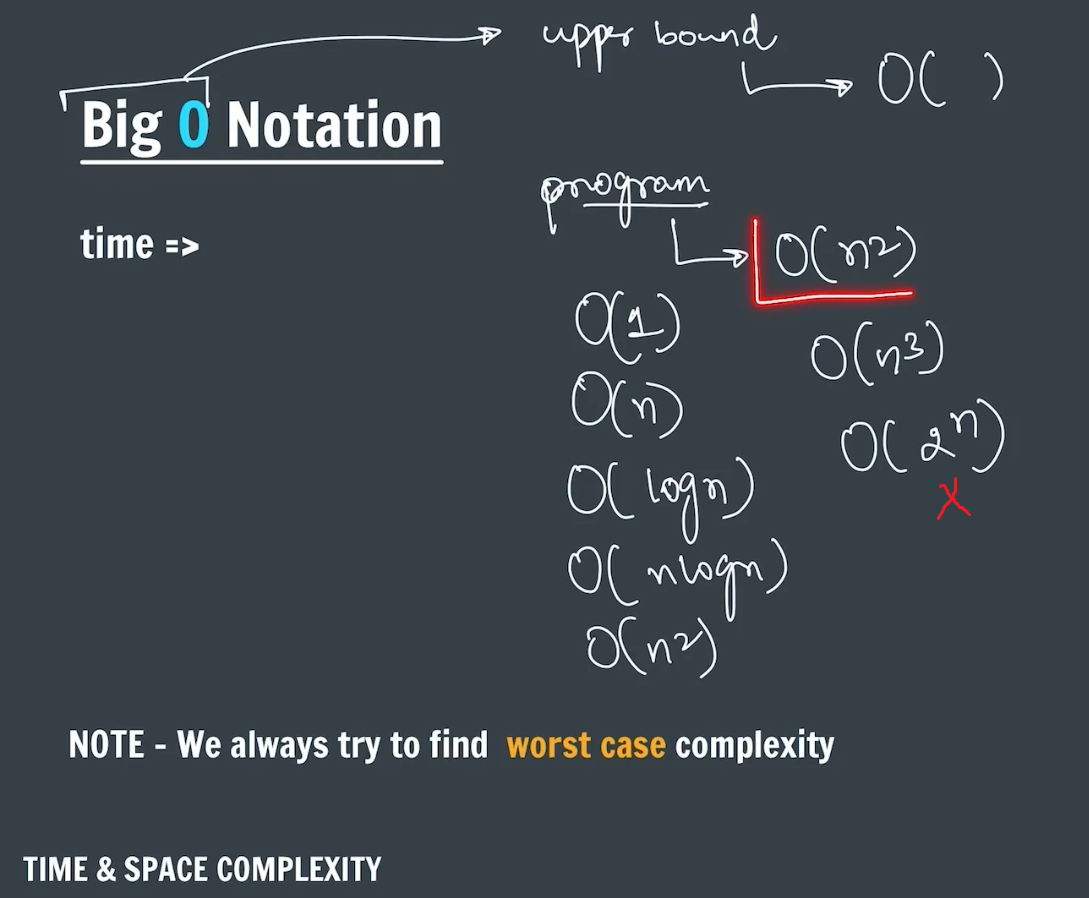 upper bound
O( )
Big O Notation
program
time =>
O(n2)
O(1)
O(n3)
O(n)
O(2^n)
O(logn)
X
O(nlogn)
O(n2)
NOTE - We always try to find worst case complexity
TIME & SPACE COMPLEXITY